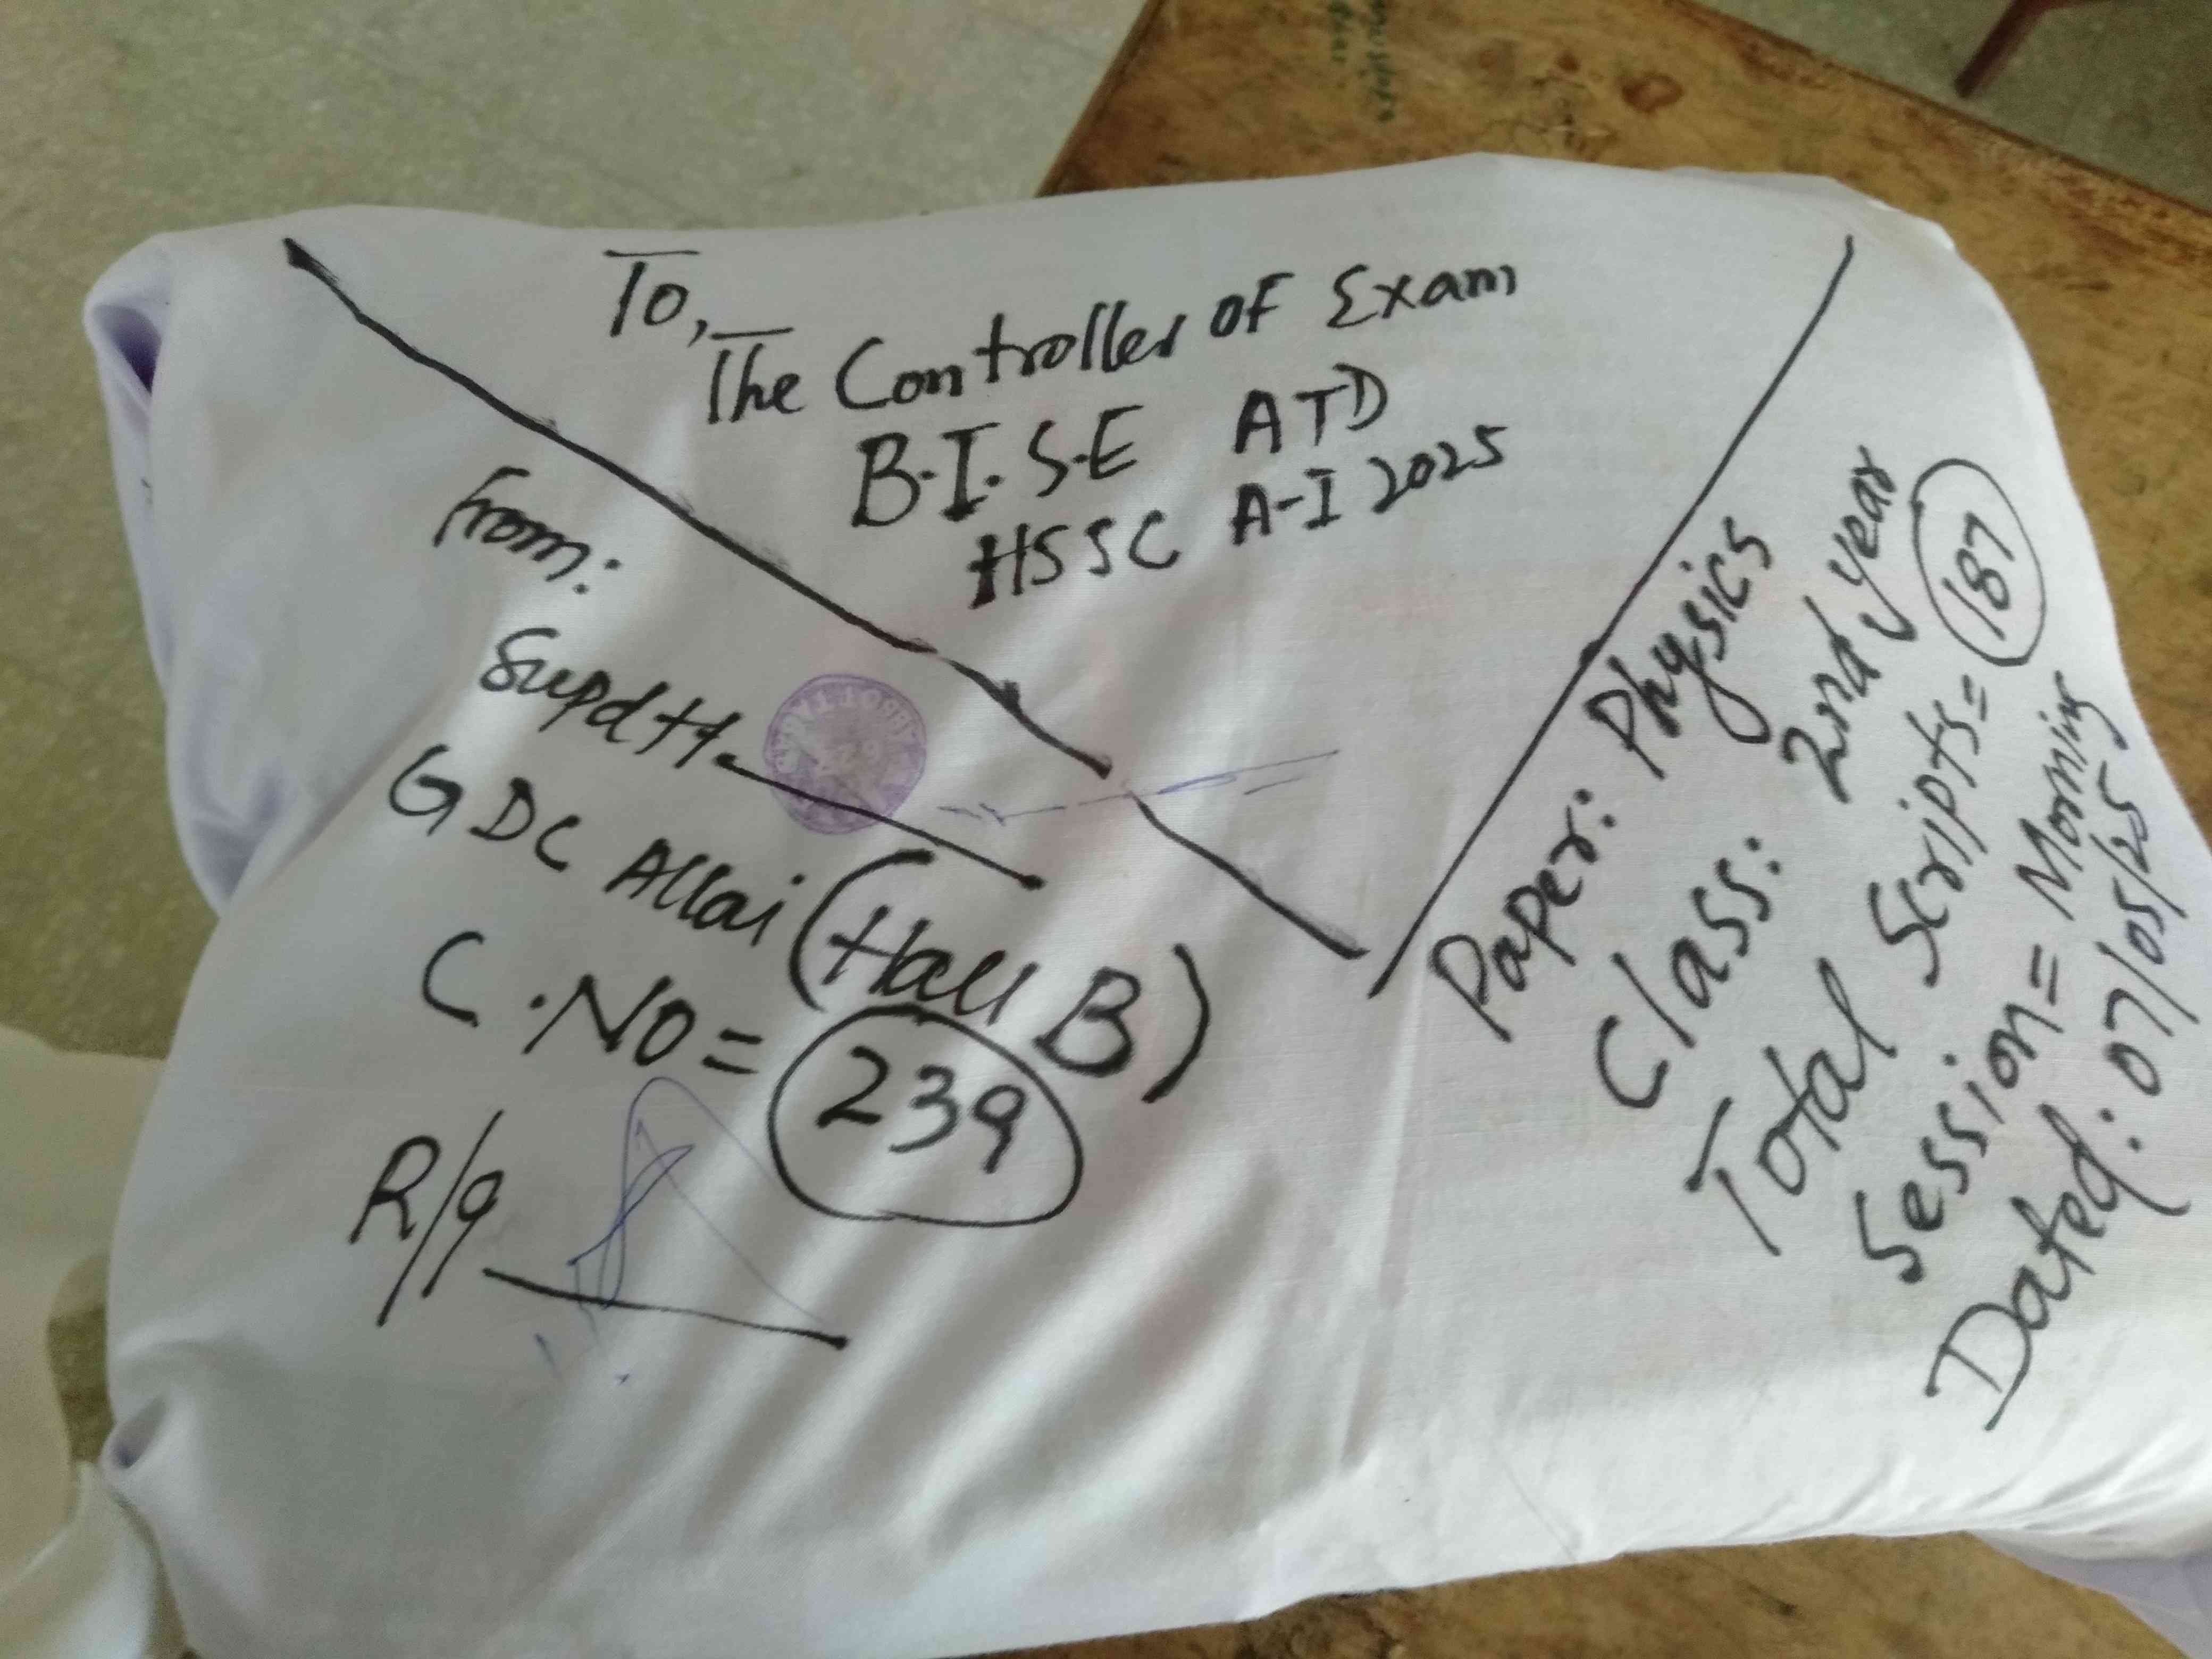 To,
The Controller OF Exam
B.I.S.E ATD
HSSC A-I 2025
From:
Supdtt.
GDC Allai (Hall B)
C.No= 239
R/9
Paper: Physics
Class: 2nd year
Total Scripts= 187
Session= Morning
Dated: 07/05/25